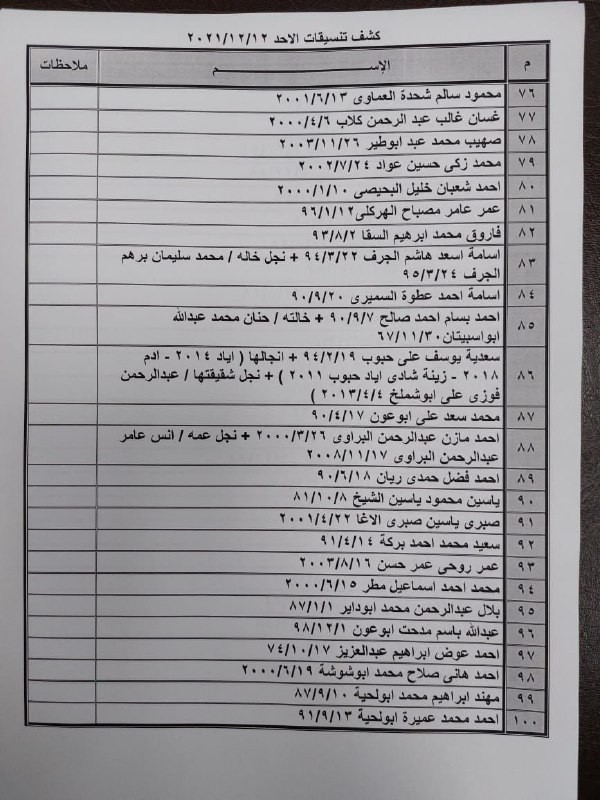 كشف تنسيقات الاحد ٢٠٢١/١٢/١٢
م الإســـــــــــــم ملاحظات
٧٦ محمود سالم شحدة العماوى ٢٠٠١/٦/١٣
٧٧ غسان غالب عبد الرحمن كلاب ٢٠٠٠/٤/٦
٧٨ صهيب محمد عبد ابوطير ٢٠٠٣/١١/٢٦
٧٩ محمد زكى حسين عواد ٢٠٠٢/٧/٢٤
٨٠ احمد شعبان خليل البحيصى ٢٠٠٠/١/١٠
٨١ عمر عامر مصباح الهركلى ٩٦/١/١٢
٨٢ فاروق محمد ابرهيم السقا ٩٣/٨/٢
٨٣ اسامة اسعد هاشم الجرف ٩٤/٣/٢٢ + نجل خاله / محمد سليمان برهم
الجرف ٩٥/٣/٢٤
٨٤ اسامة احمد عطوة السميرى ٩٠/٩/٢٠
٨٥ احمد بسام احمد صالح ٩٠/٩/٧ + خالته / حنان محمد عبدالله
ابواسبيتان ٦٧/١١/٣٠
٨٦ سعدية يوسف على حبوب ٩٤/٢/١٩ + انجالها ( اياد ٢٠١٤ - ادم
٢٠١٨ - زينة شادى اياد حبوب ٢٠١١ ) + نجل شقيقتها / عبدالرحمن
فوزى على ابوشملخ ٢٠١٣/٤/٤ )
٨٧ محمد سعد على ابوعون ٩٠/٤/١٧
٨٨ احمد مازن عبدالرحمن البراوى ٢٠٠٠/٣/٢٦ + نجل عمه / انس عامر
عبدالرحمن البراوى ٢٠٠٨/١١/١٧
٨٩ احمد فضل حمدى ريان ٩٠/٦/١٨
٩٠ ياسين محمود ياسين الشيخ ٨١/١٠/٨
٩١ صبرى ياسين صبرى الاغا ٢٠٠١/٤/٢٢
٩٢ سعيد محمد احمد بركة ٩١/٤/١٤
٩٣ عمر روحى عمر حسن ٢٠٠٣/٨/١٦
٩٤ محمد احمد اسماعيل مطر ٢٠٠٠/٦/١٥
٩٥ بلال عبدالرحمن محمد ابوداير ٨٧/١/١
٩٦ عبدالله باسم مدحت ابوعون ٩٨/١٢/١
٩٧ احمد عوض ابراهيم عبدالعزيز ٧٤/١٠/١٧
٩٨ احمد هانى صلاح محمد ابوشوشة ٢٠٠٠/٦/١٩
٩٩ مهند ابراهيم محمد ابولحية ٨٧/٩/١٠
١٠٠ احمد محمد عميرة ابولحية ٩١/٩/١٣